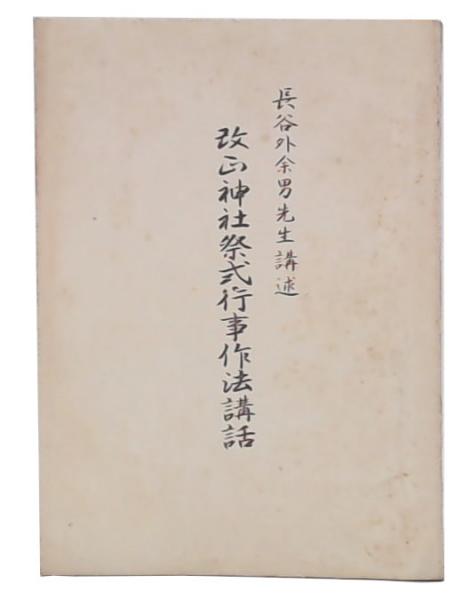 長谷外余男先生講述
改正神社祭式行事作法講話